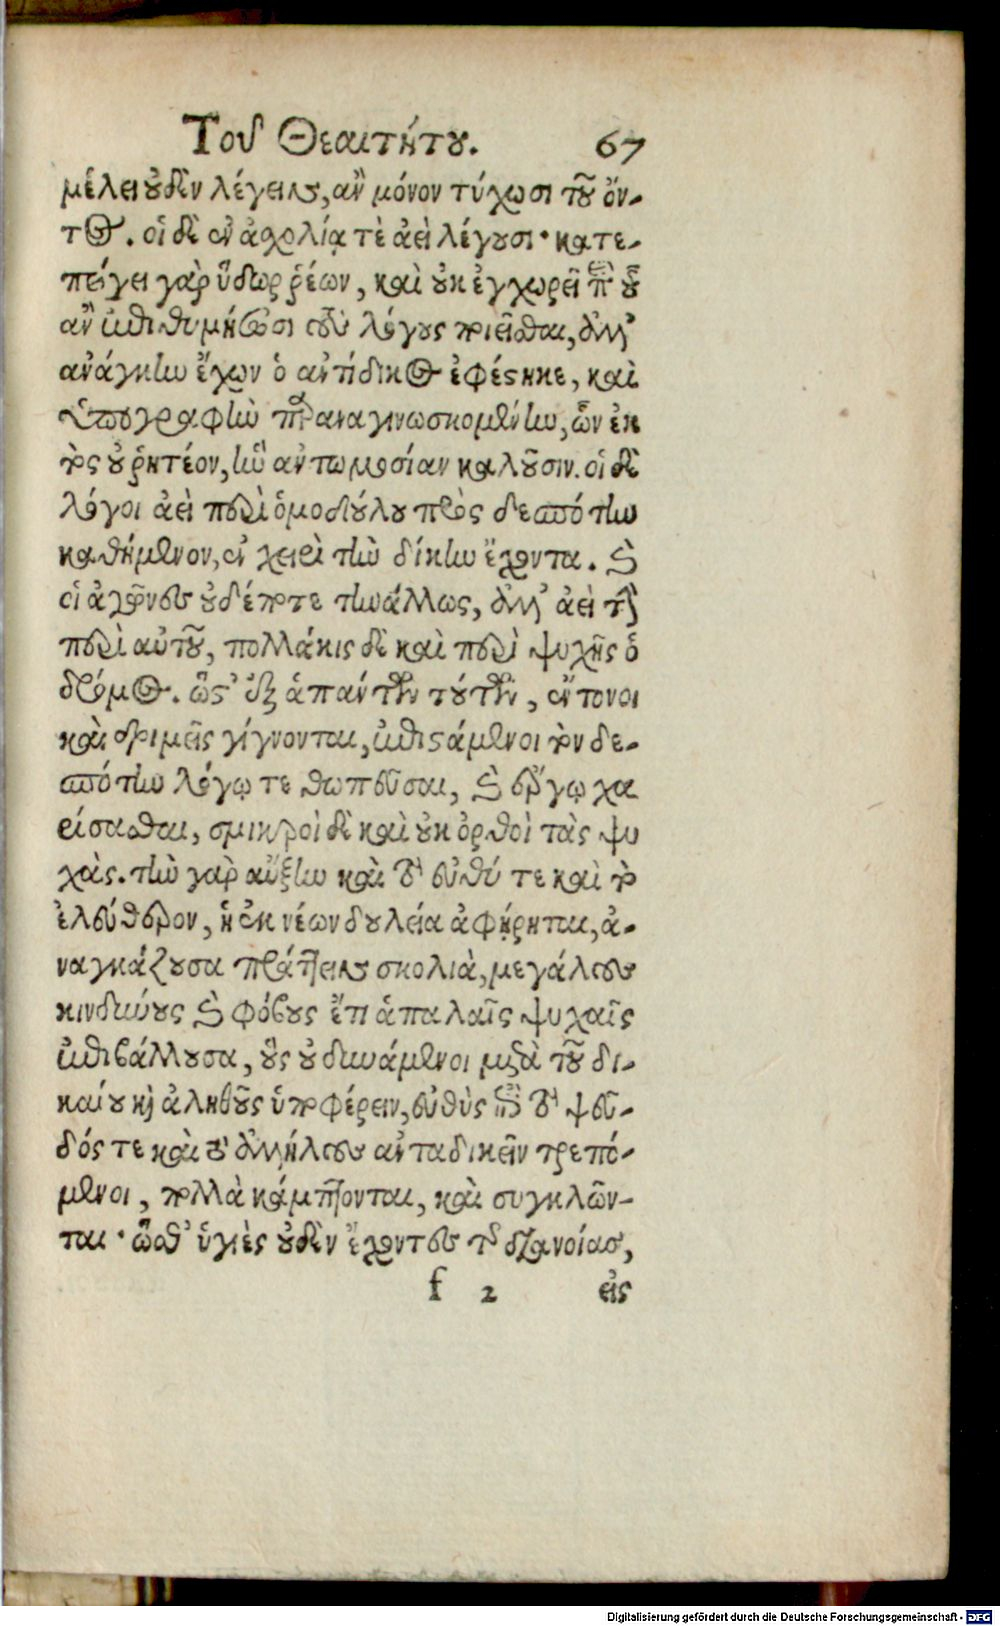 Τοῦ Θεαιτήτου. 67
μέλει οὐδὲν λέγειν, ἂν μόνον τύχωσι τοῦ ὄν-
τος. οἱ δὲ ἐν ἀσχολίᾳ τὲ ἀεὶ λέγουσι· κατε-
πείγει γὰρ ὕδωρ ῥέον, καὶ οὐκ ἐγχωρεῖ περὶ οὗ
ἂν ἐπιθυμήσωσι τοὺς λόγους ποιεῖσθαι, ἀλλ'
ἀνάγκην ἔχων ὁ ἀντίδικος ἐφέστηκε, καὶ
ὑπογραφὴν παραναγινωσκομένην, ὧν ἐκ
τὸς οὐ ῥητέον, ἣν ἀντωμοσίαν καλοῦσιν. οἱ δὲ
λόγοι ἀεὶ περὶ ὁμοδούλου πρὸς δεσπότην
καθήμενον, ἐν χειρὶ τὴν δίκην ἔχοντα. καὶ
οἱ ἀγῶνες οὐδέποτε τὴν ἄλλως, ἀλλ' ἀεὶ τὴν
περὶ αὐτοῦ, πολλάκις δὲ καὶ περὶ ψυχῆς ὁ
δρόμος. ὥστ' ἐξ ἁπάντων τούτων, ἔντονοι
καὶ δριμεῖς γίγνονται, ἐπιστάμενοι τὸν δε-
σπότην λόγῳ τε θωπεῦσαι, καὶ ἔργῳ χα
ρίσασθαι, σμικροὶ δὲ καὶ οὐκ ὀρθοὶ τὰς ψυ
χάς. τὴν γὰρ αὔξην καὶ τὸ εὐθύ τε καὶ τὸ
ἐλεύθερον, ἡ ἐκ νέων δουλεία ἀφῄρηται, ἀ-
ναγκάζουσα πράττειν σκολιὰ, μεγάλους
κινδύνους καὶ φόβους ἔτι ἁπαλαῖς ψυχαῖς
ἐπιβάλλουσα, οὓς οὐ δυνάμενοι μετὰ τοῦ δι-
καίου καὶ ἀληθοῦς ὑποφέρειν, εὐθὺς ἐπὶ τὸ ψεῦ-
δός τε καὶ τὸ ἀλλήλους ἀνταδικεῖν τρεπό-
μενοι, πολλὰ κάμπτονται, καὶ συγκλῶν-
ται· ὥσθ' ὑγιὲς οὐδὲν ἔχοντες τῆς διανοίας,
f 2 εἰς
Digitalisierung gefördert durch die Deutsche Forschungsgemeinschaft - DFG